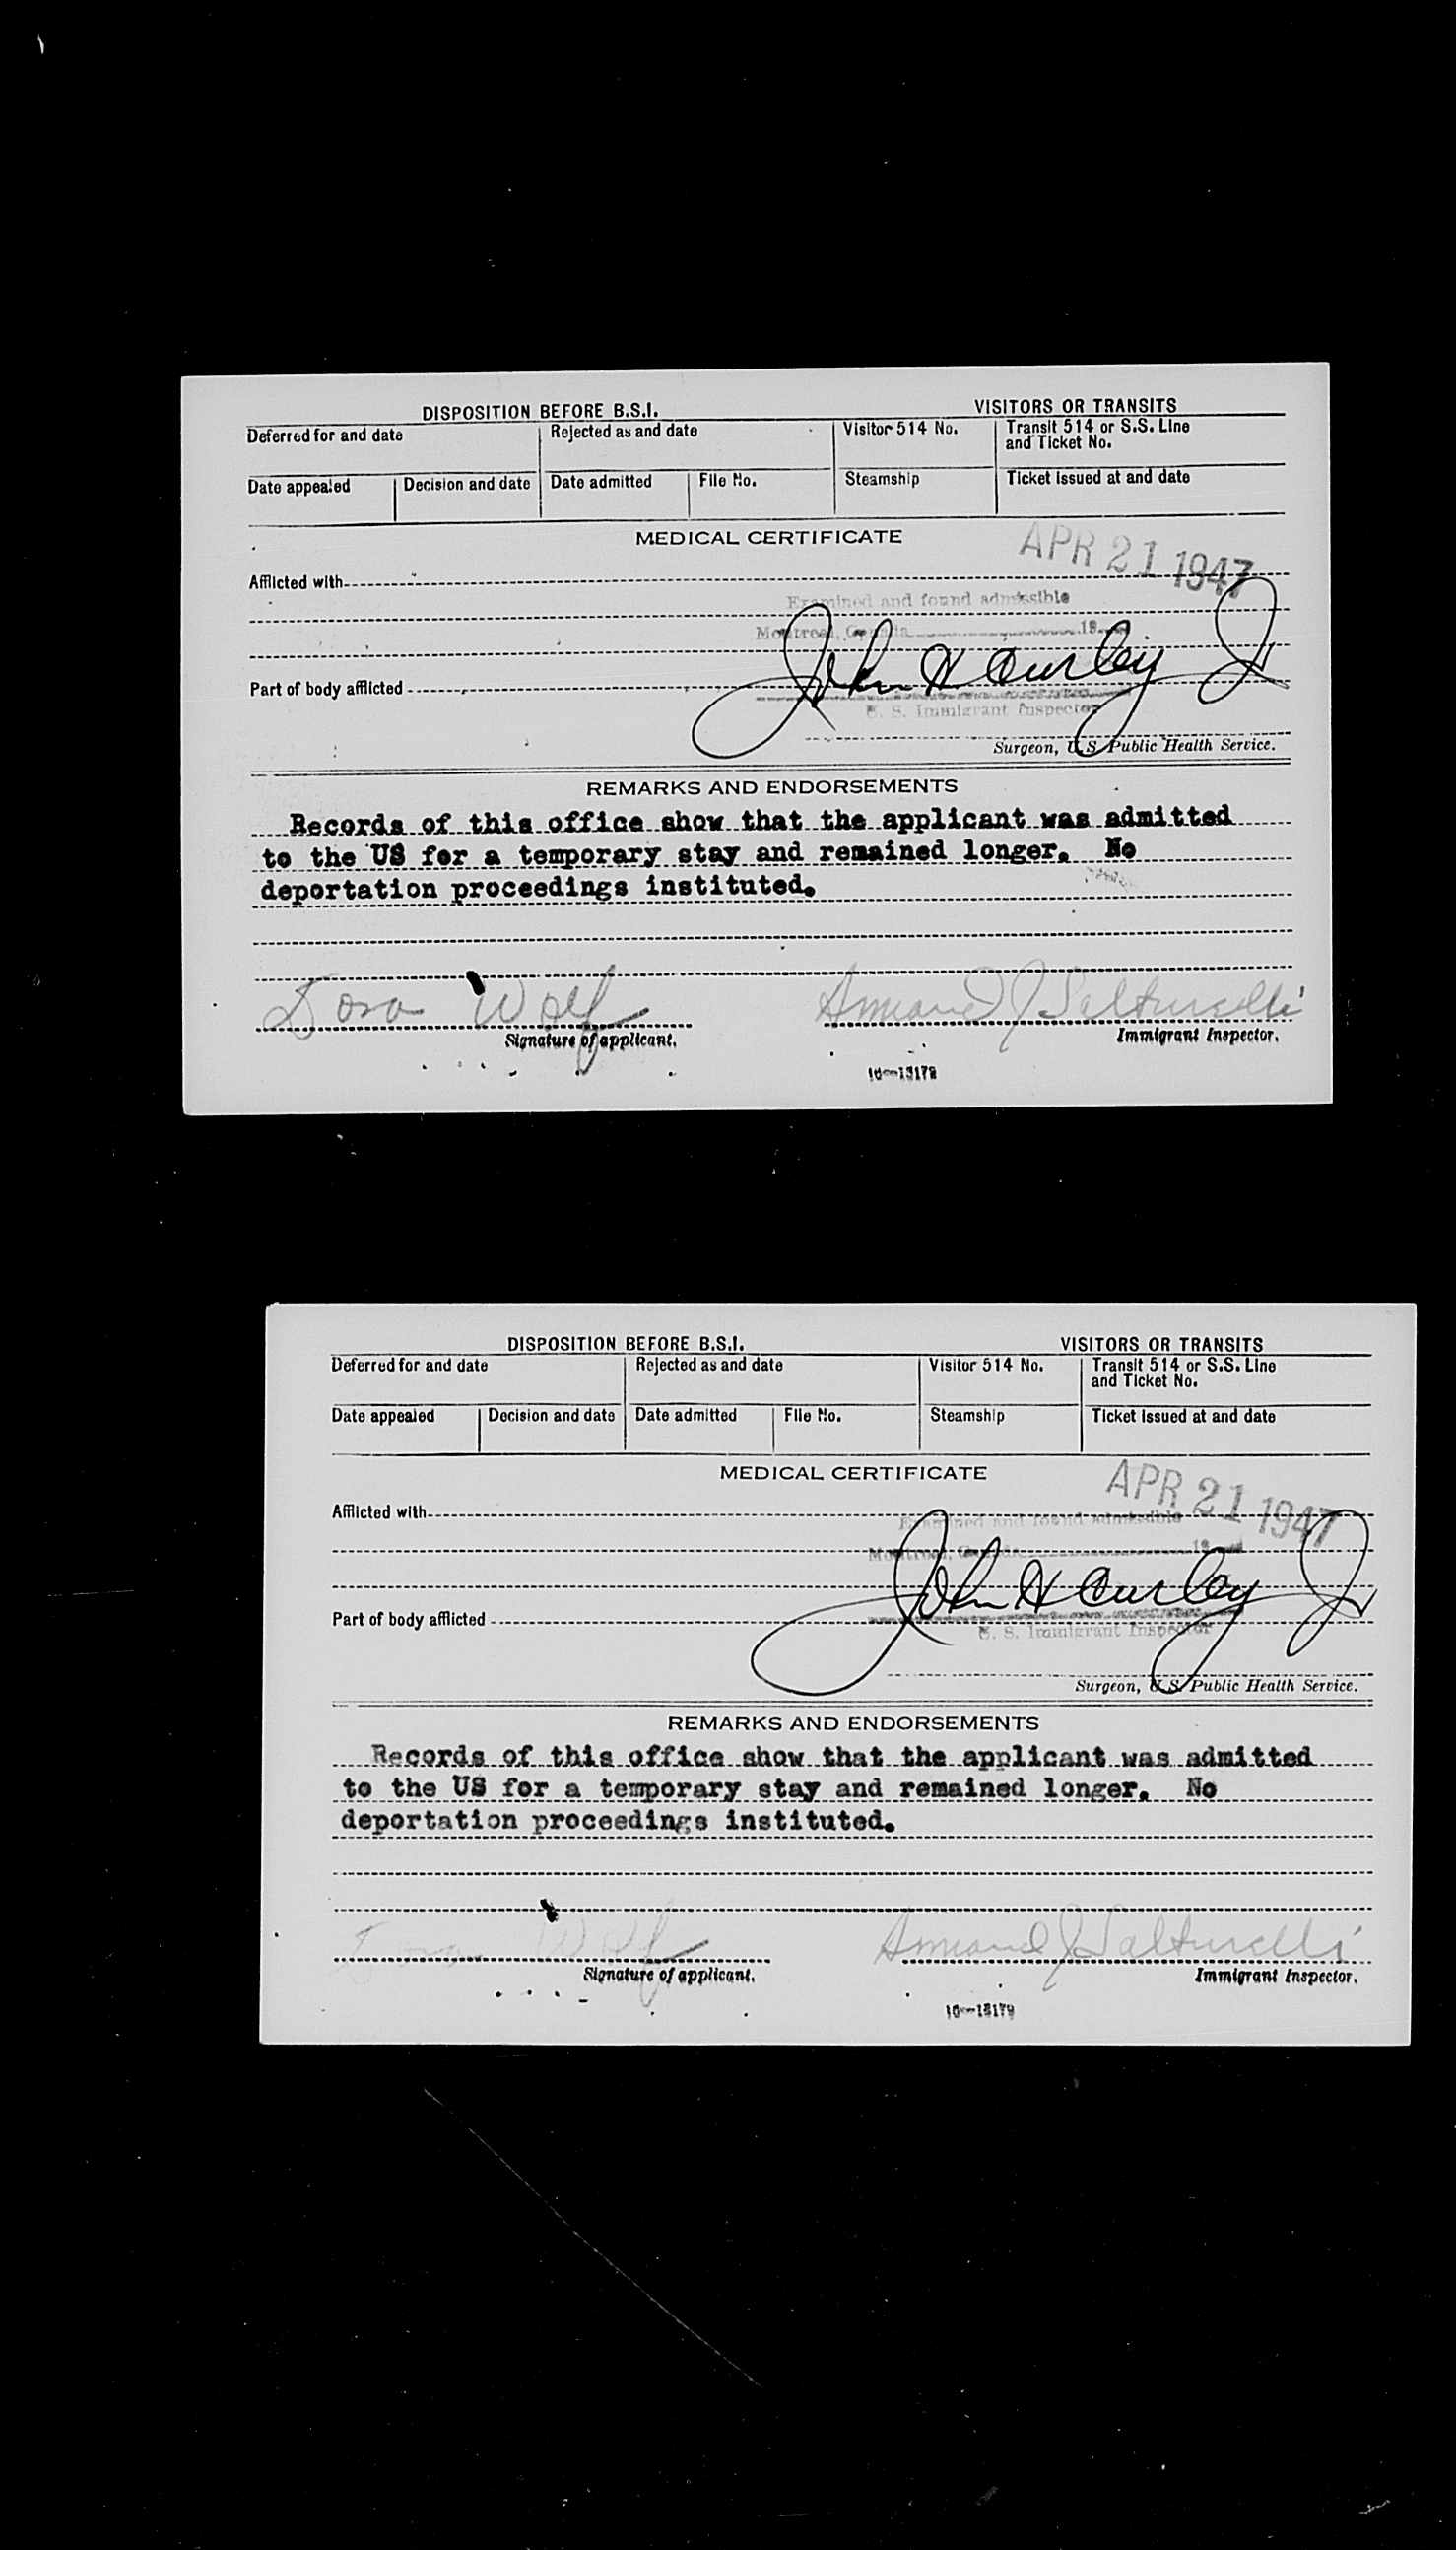 DISPOSITION BEFORE B.S.I. VISITORS OR TRANSITS
Deferred for and date Rejected as and date Visitor 514 No. Transit 514 or S.S. Line and Ticket No.
Date appealed Decision and date Date admitted File No. Steamship Ticket issued at and date
MEDICAL CERTIFICATE
APR 21 1947
Afflicted with
Examined and found admissible
Montreal, Canada 19
John H Curley Jr
Part of body afflicted
U. S. Immigrant Inspector
Surgeon, U.S. Public Health Service.
REMARKS AND ENDORSEMENTS
Records of this office show that the applicant was admitted
to the US for a temporary stay and remained longer. No
deportation proceedings instituted.
Dora Wolf Armand J
Signature of applicant. Immigrant Inspector.
DISPOSITION BEFORE B.S.I. VISITORS OR TRANSITS
Deferred for and date Rejected as and date Visitor 514 No. Transit 514 or S.S. Line and Ticket No.
Date appealed Decision and date Date admitted File No. Steamship Ticket issued at and date
MEDICAL CERTIFICATE
APR 21 1947
Afflicted with
Examined and found admissible
Montreal, Canada 19
John H Curley Jr
Part of body afflicted
U. S. Immigrant Inspector
Surgeon, U.S. Public Health Service.
REMARKS AND ENDORSEMENTS
Records of this office show that the applicant was admitted
to the US for a temporary stay and remained longer. No
deportation proceedings instituted.
Dora Wolf Armand J
Signature of applicant. Immigrant Inspector.